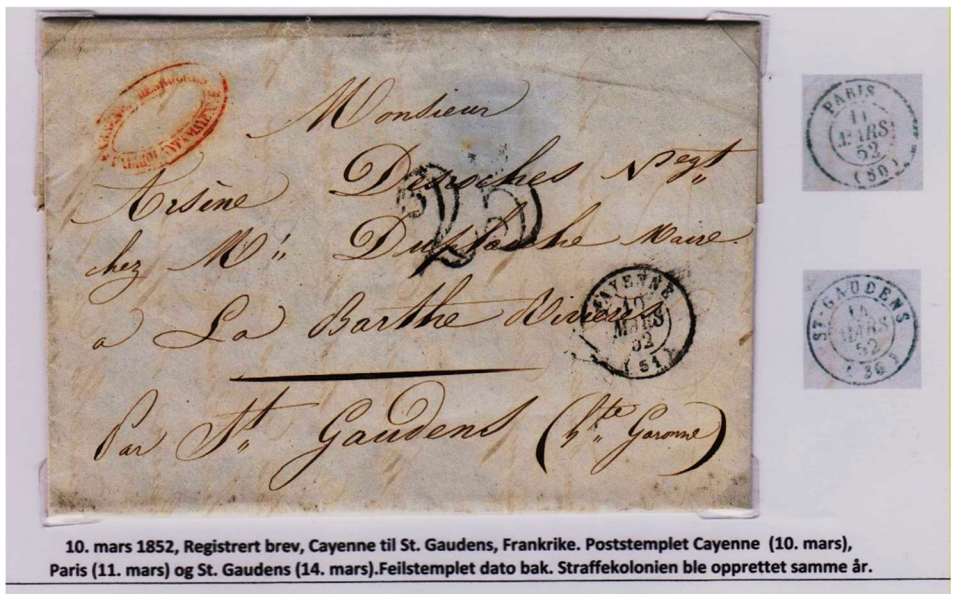 DESROCHES
MAYENNE
Monsieur
Arsène Desroches Negt
chez Mr Maire
25
a La Barthe
MAYENNE
10
MARS
52
(51)
Par St Gaudens (hte Garonne)
PARIS
11
MARS
52
(50)
ST-GAUDENS
14
MARS
52
(30)
10. mars 1852, Registrert brev, Cayenne til St. Gaudens, Frankrike. Poststemplet Cayenne (10. mars),
Paris (11. mars) og St. Gaudens (14. mars).Feilstemplet dato bak. Straffekolonien ble opprettet samme år.